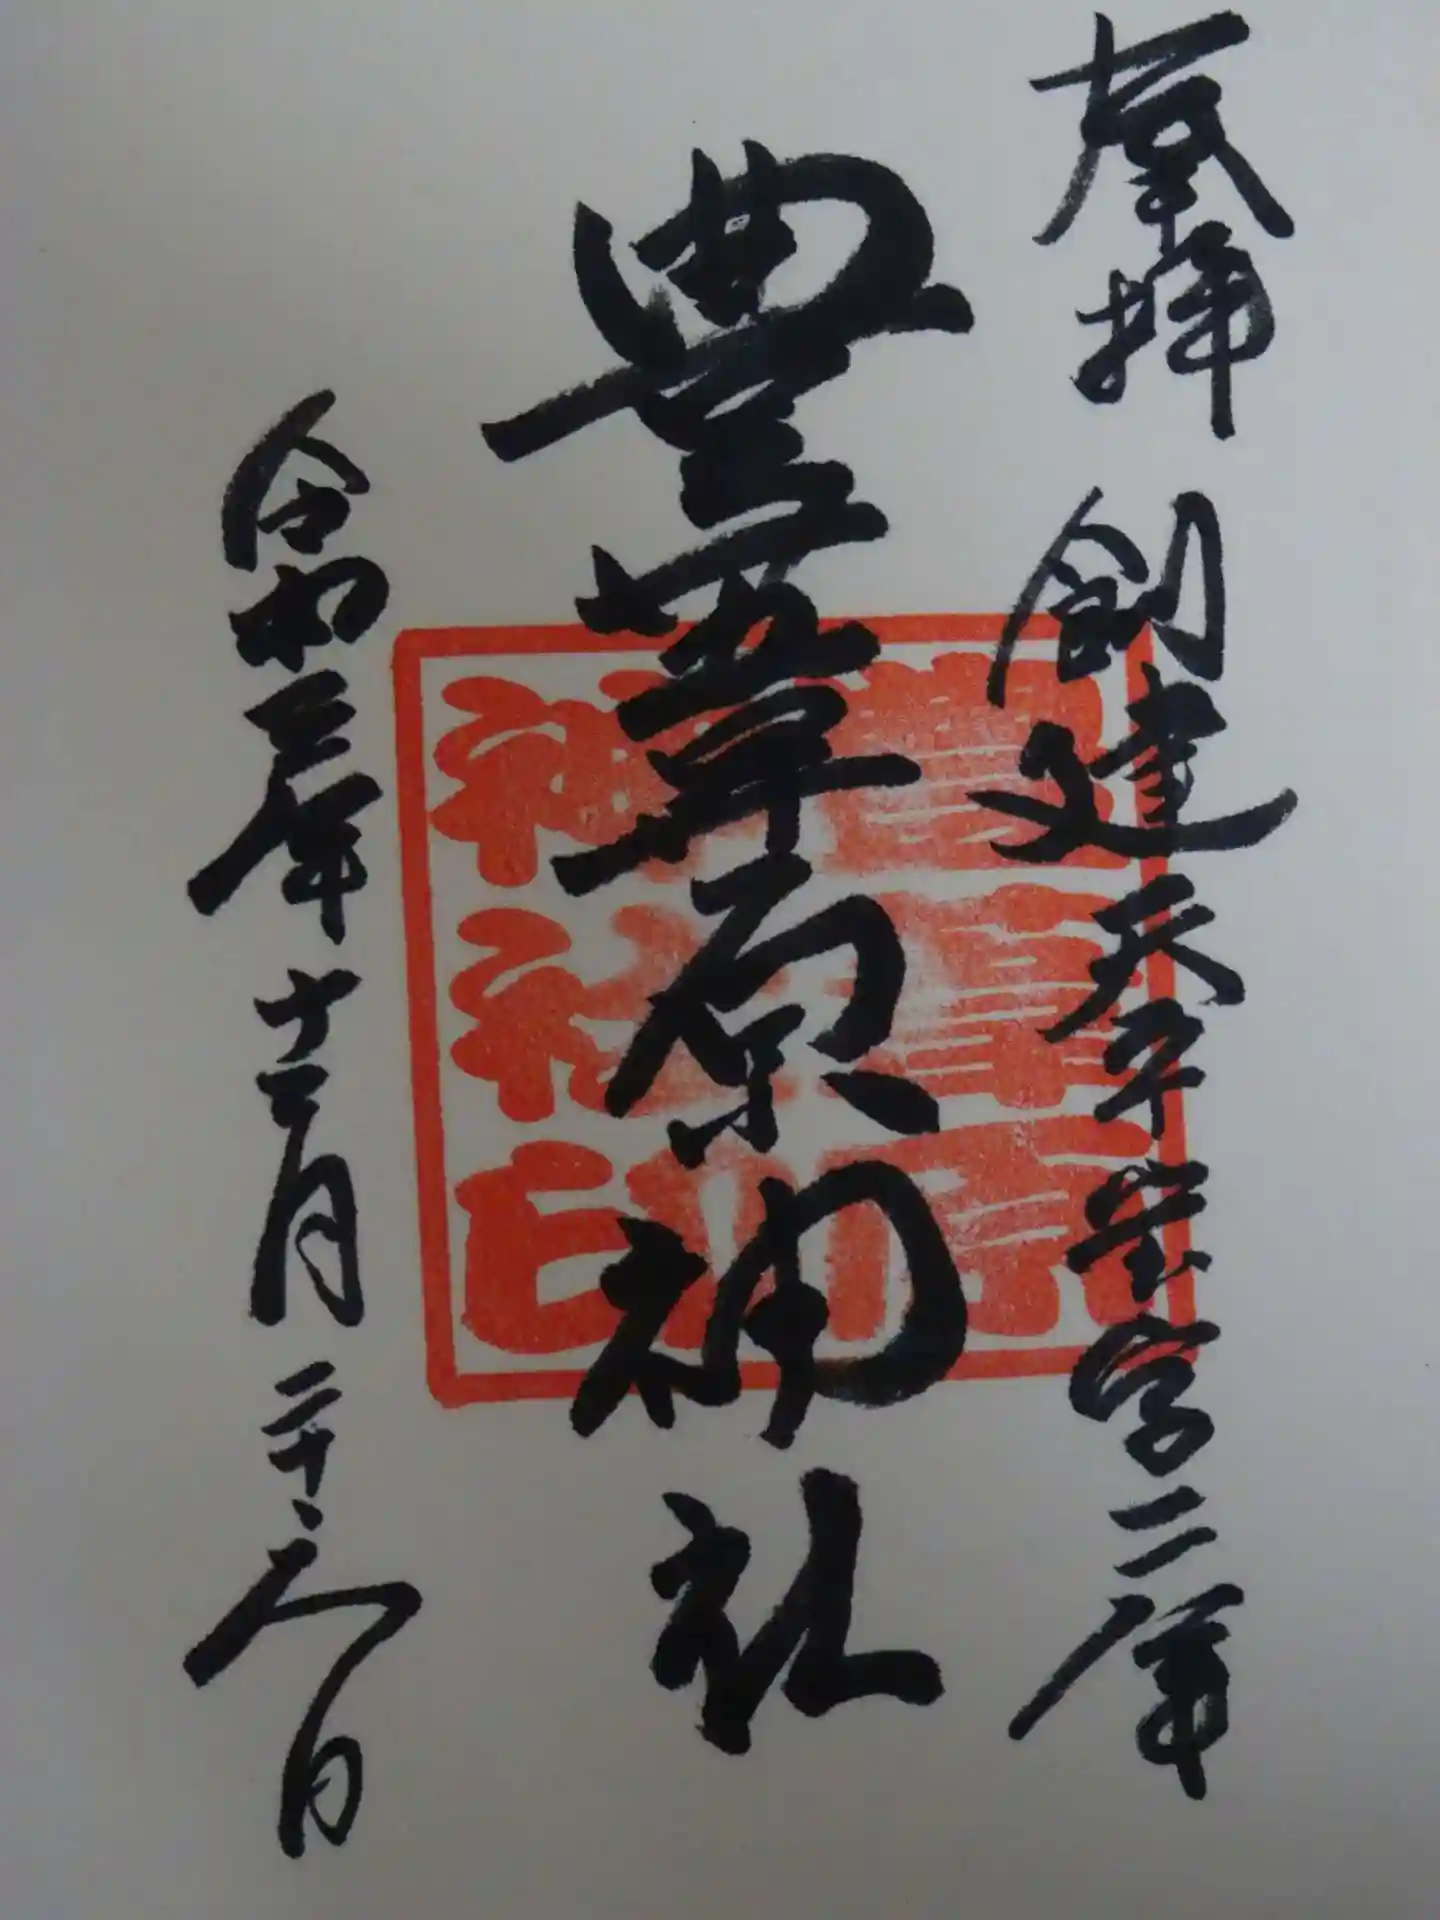 奉拝 創建天平宝字二年
豊葦原神社
令和三年十二月二十六日
豊葦原
神社印